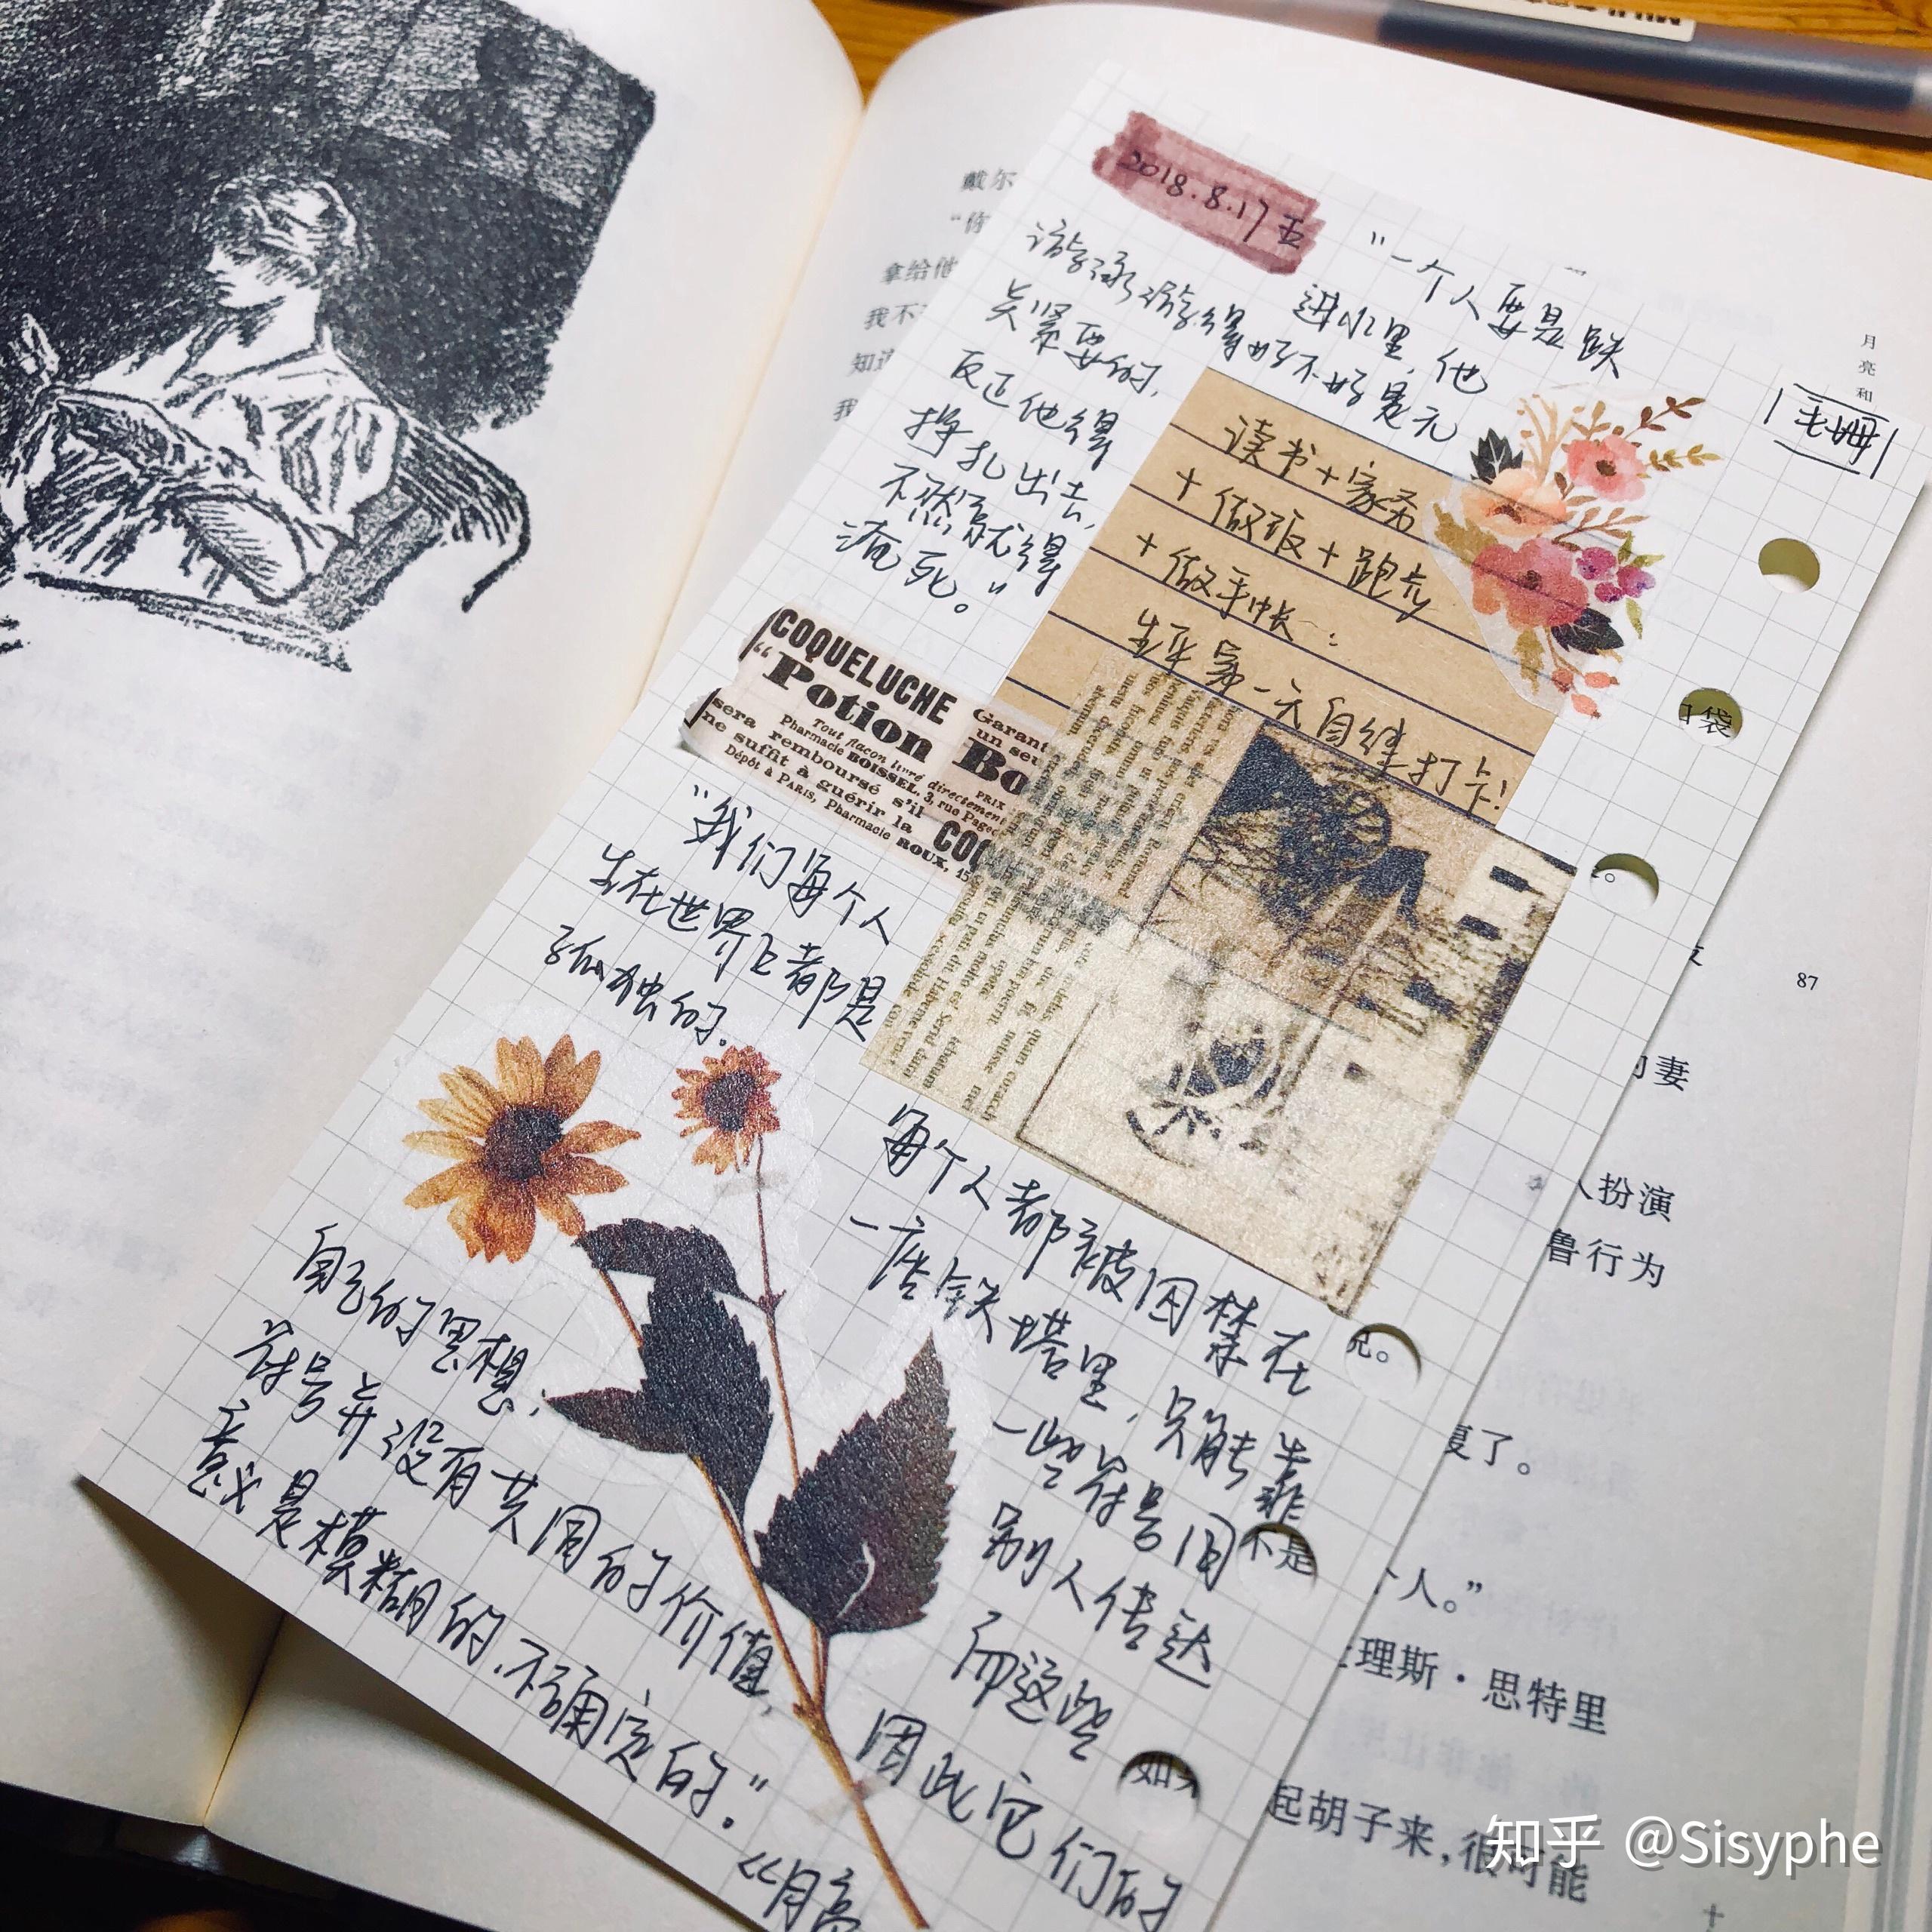 2018.8.17 五
"一个人要是跌
进水里，他
游泳游得好不好是无
关紧要的，
反正他得
挣扎出去，
不然就得
淹死。"
读书+家务
+做饭+跑步
+做手帐：
生平第一天自律打卡！
COQUELUCHE
"Potion Bo
Garant
un seu
Tout flacon livré directement
PRIX
Pharmacie BOISSEL, 3, rue Page
sera remboursé s'il
ne suffit à guérir la COQ
Dépôt à PARIS, Pharmacie ROUX, 15
"我们每个人
生在世界上都是
孤独的。
每个人都被囚禁在
一座铁塔里，只能靠
一些符号同
别人传达
自己的思想；
而这些
符号并没有共同的价值，
因此它们的
意义是模糊的、不确定的。"
《月亮
月亮和
87
戴尔
"你
拿给他
我不
知道
我
口袋
的妻
人扮演
鲁行为
况。
复了。
不是
个人。"
理斯·思特里
如
起胡子来，很可能
知乎 @Sisyphe